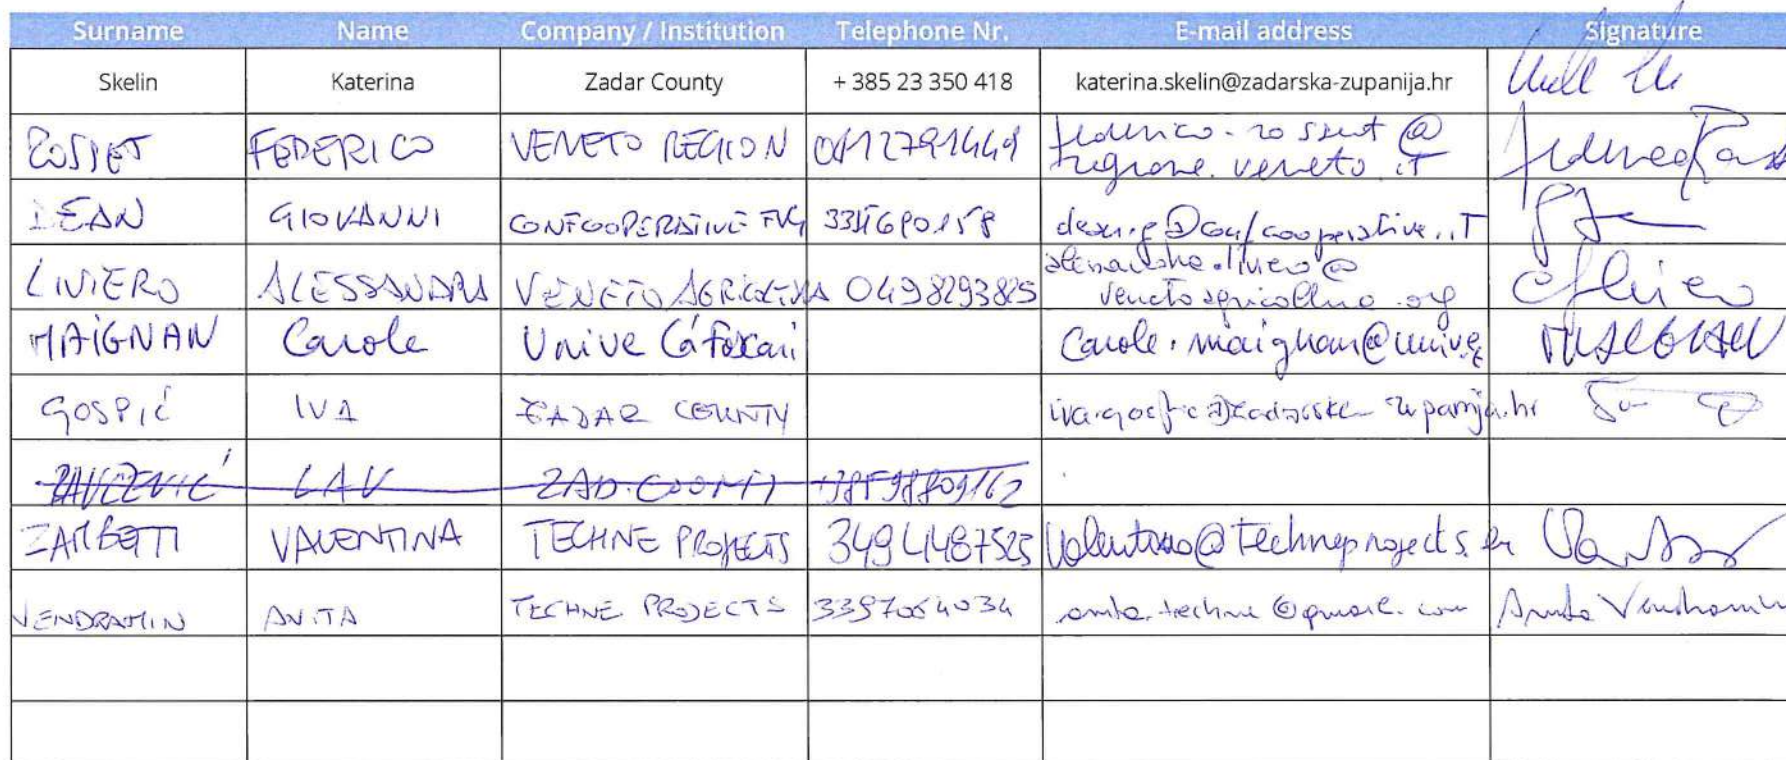 Surname Name Company / Institution Telephone Nr. E-mail address Signature
Skelin Katerina Zadar County + 385 23 350 418 katerina.skelin@zadarska-zupanija.hr
ROSSET FEDERICO VENETO REGION 0412791449 federico.rosset@
regione.veneto.it
DEAN GIOVANNI CONFCOOPERATIVE FVG dean.g@confcooperative.it
LIVIERO ALESSANDRA VENETO AGRICOLTURA 0498293825 alessandra.liviero@
venetoagricoltura.org
MAIGNAN Carole Unive Cá Foscari Carole.maignan@unive.it MAIGNAN
GOSPIĆ IVA ZADAR COUNTY iva.gospic@zadarska-zupanija.hr
LAV ZAD. COUNTY
ZARBETTI VALENTINA TECHNE PROJECTS 3494487525
VENDRAMIN ANITA TECHNE PROJECTS 3397064034 anita.techne@gmail.com Anita Vendramin